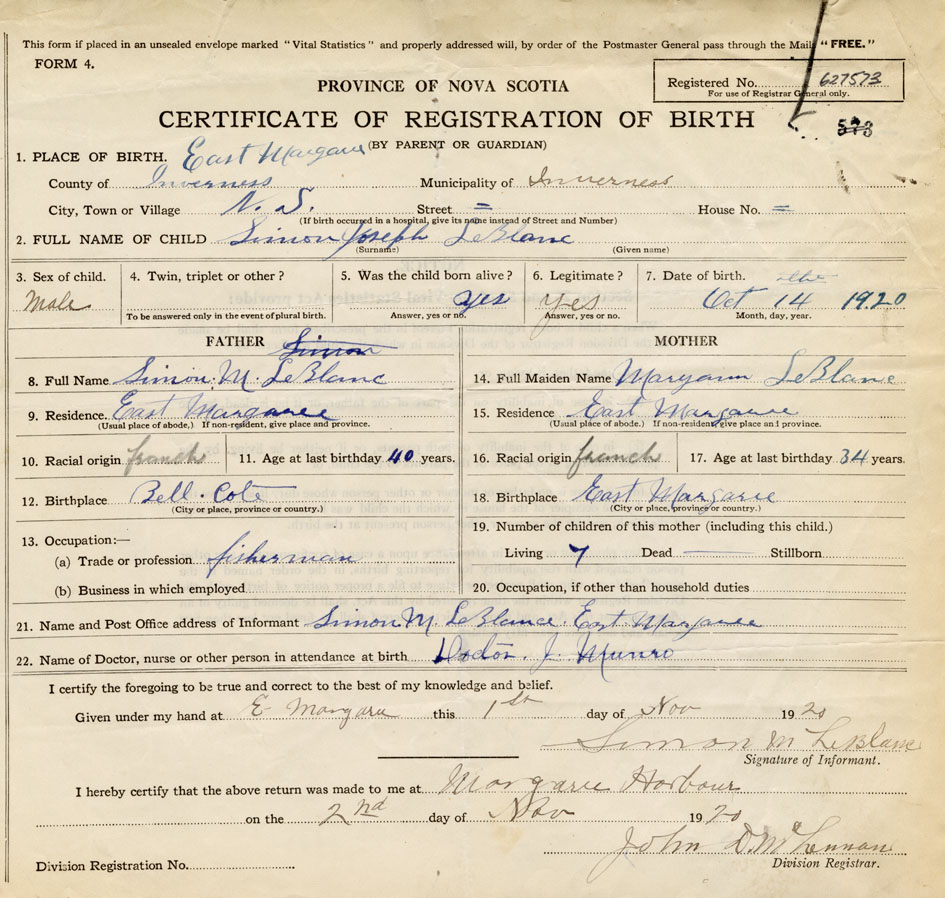 This form if placed in an unsealed envelope marked "Vital Statistics" and properly addressed will, by order of the Postmaster General pass through the Mail "FREE."
FORM 4.
PROVINCE OF NOVA SCOTIA
Registered No. 627573
For use of Registrar General only.
CERTIFICATE OF REGISTRATION OF BIRTH
573
(BY PARENT OR GUARDIAN)
1. PLACE OF BIRTH. East Margaree
County of Inverness Municipality of Inverness
City, Town or Village N. S. Street = House No. =
(If birth occurred in a hospital, give its name instead of Street and Number)
2. FULL NAME OF CHILD Simon Joseph LeBlanc
(Surname) (Given name)
3. Sex of child. 4. Twin, triplet or other? 5. Was the child born alive? 6. Legitimate? 7. Date of birth.
Male yes yes Oct 14 1920
To be answered only in the event of plural birth. Answer, yes or no. Answer, yes or no. Month, day, year.
FATHER Simon MOTHER
8. Full Name Simon. M. LeBlanc 14. Full Maiden Name Maryann LeBlanc
9. Residence. East Margaree 15. Residence East Margaree
(Usual place of abode.) If non-resident, give place and province. (Usual place of abode.) If non-resident, give place and province.
10. Racial origin franch 11. Age at last birthday 40 years. 16. Racial origin french 17. Age at last birthday 34 years.
12. Birthplace Bell. Cote 18. Birthplace East Margarie
(City or place, province or country.) (City or place, province or country.)
13. Occupation:— 19. Number of children of this mother (including this child.)
(a) Trade or profession fisherman Living 7 Dead — Stillborn
(b) Business in which employed 20. Occupation, if other than household duties
21. Name and Post Office address of Informant Simon M. LeBlance. East Margaree
22. Name of Doctor, nurse or other person in attendance at birth Doctor. J. Munro
I certify the foregoing to be true and correct to the best of my knowledge and belief.
Given under my hand at E Margaree this 1st day of Nov 1920
Simon M LeBlanc
Signature of Informant.
I hereby certify that the above return was made to me at Margaree Harbour
on the 2nd day of Nov 1920
John D. McLennan
Division Registration No. Division Registrar.